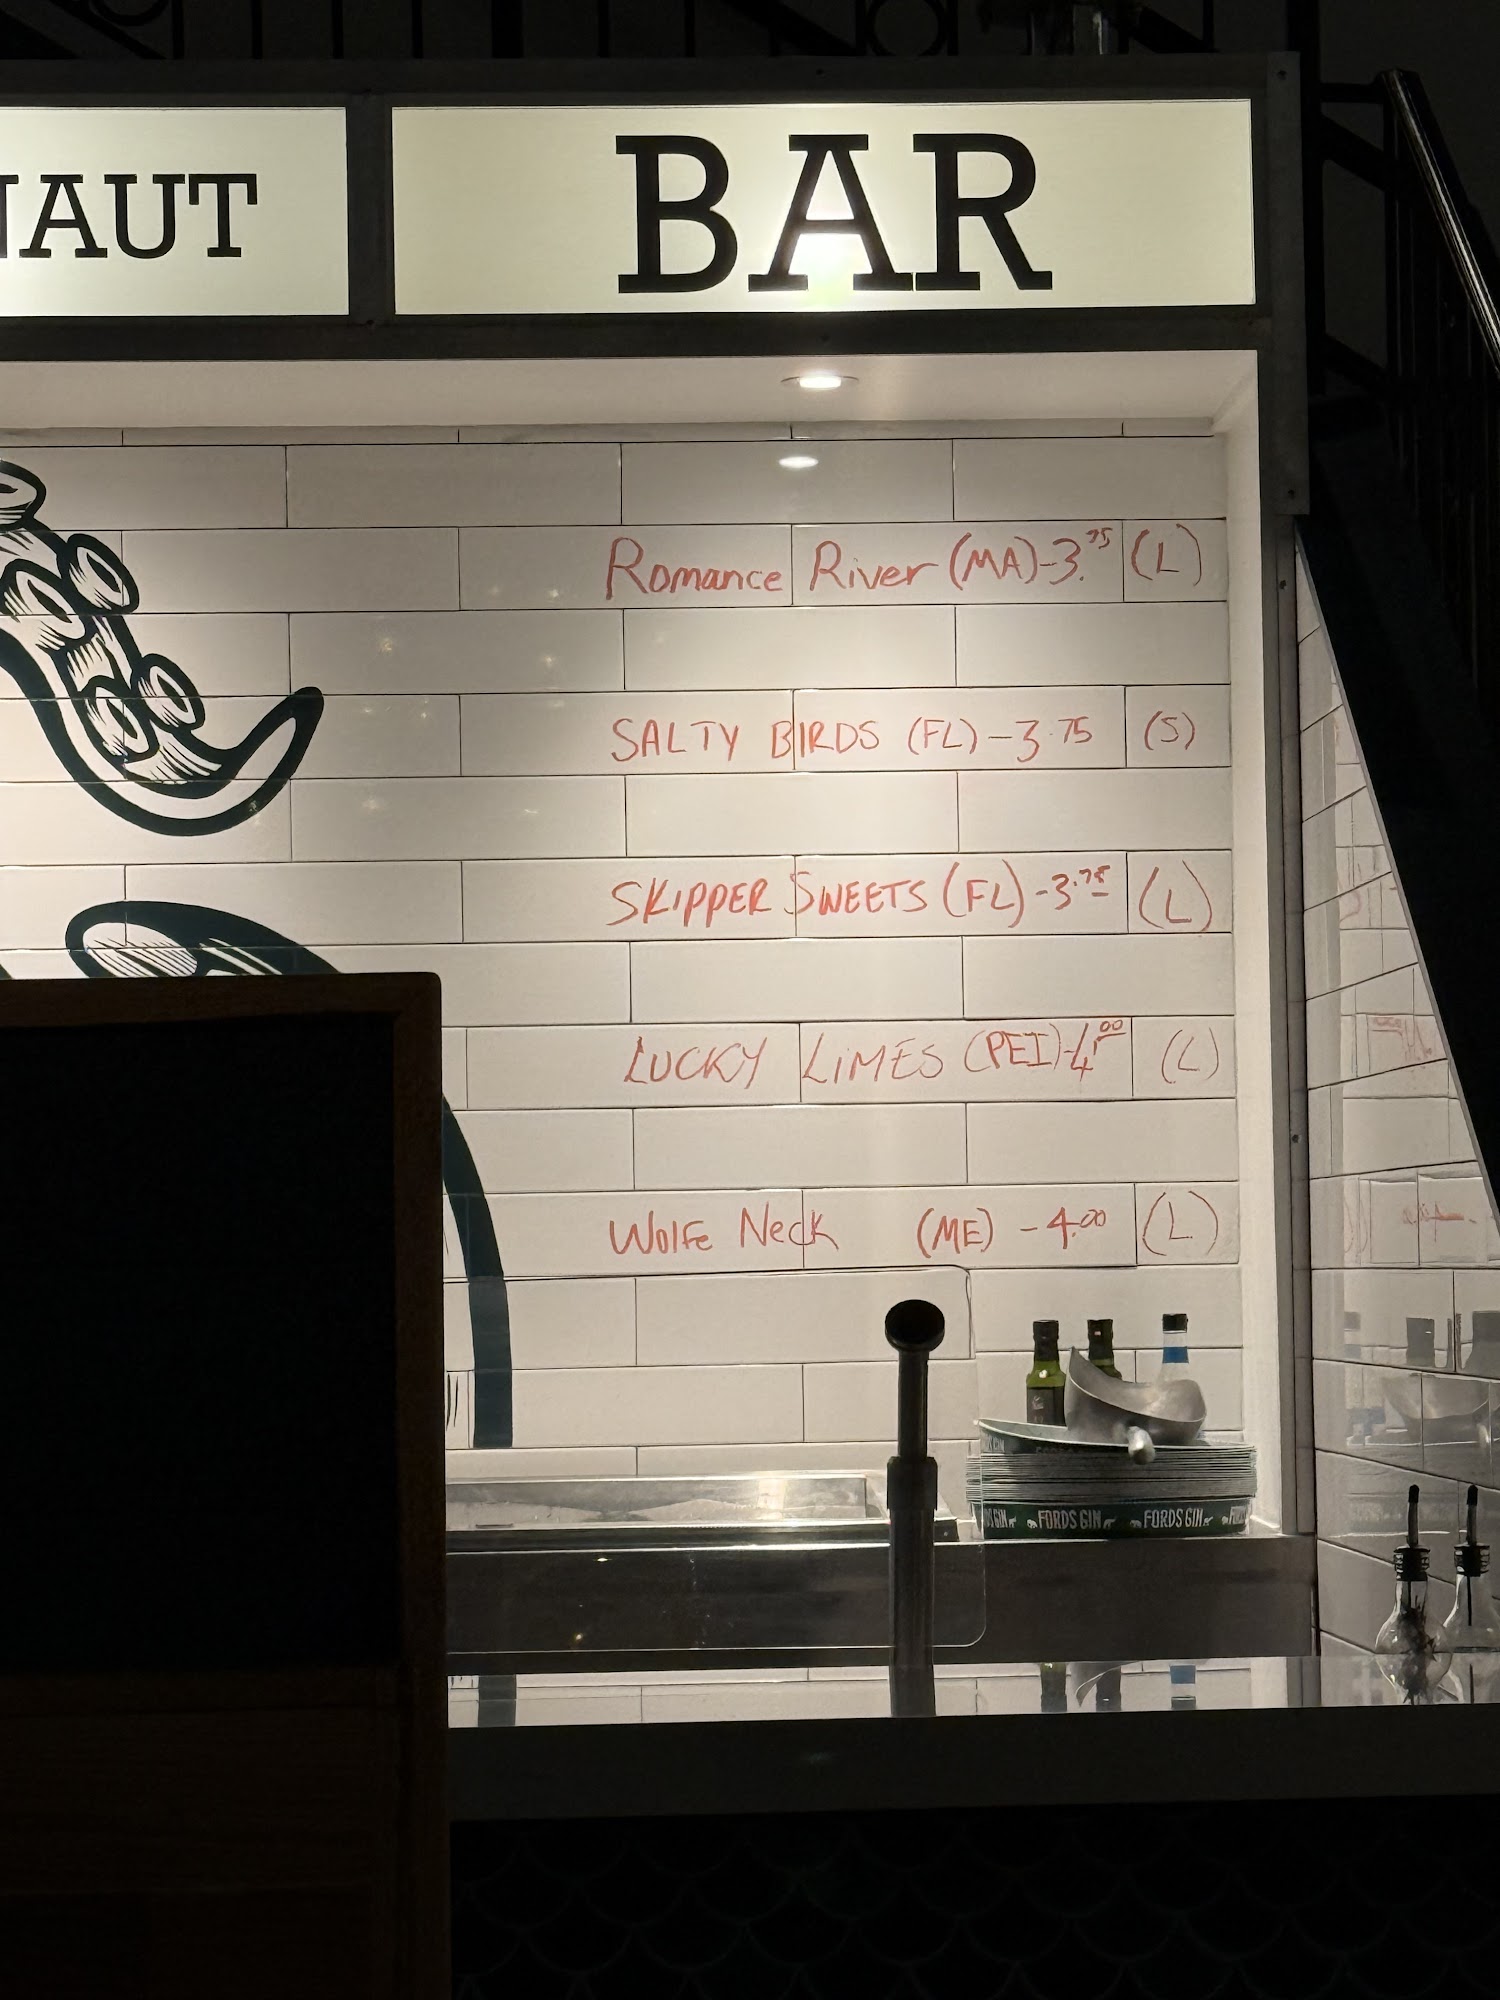 NAUT
BAR
Romance River (MA)-3.75 (L)
SALTY BIRDS (FL)-3.75 (S)
SKIPPER SWEETS (FL)-3.75 (L)
LUCKY LIMES (PEI)-4.00 (L)
Wolfe Neck (ME) -4.00 (L)
FORDS GIN FORDS GIN